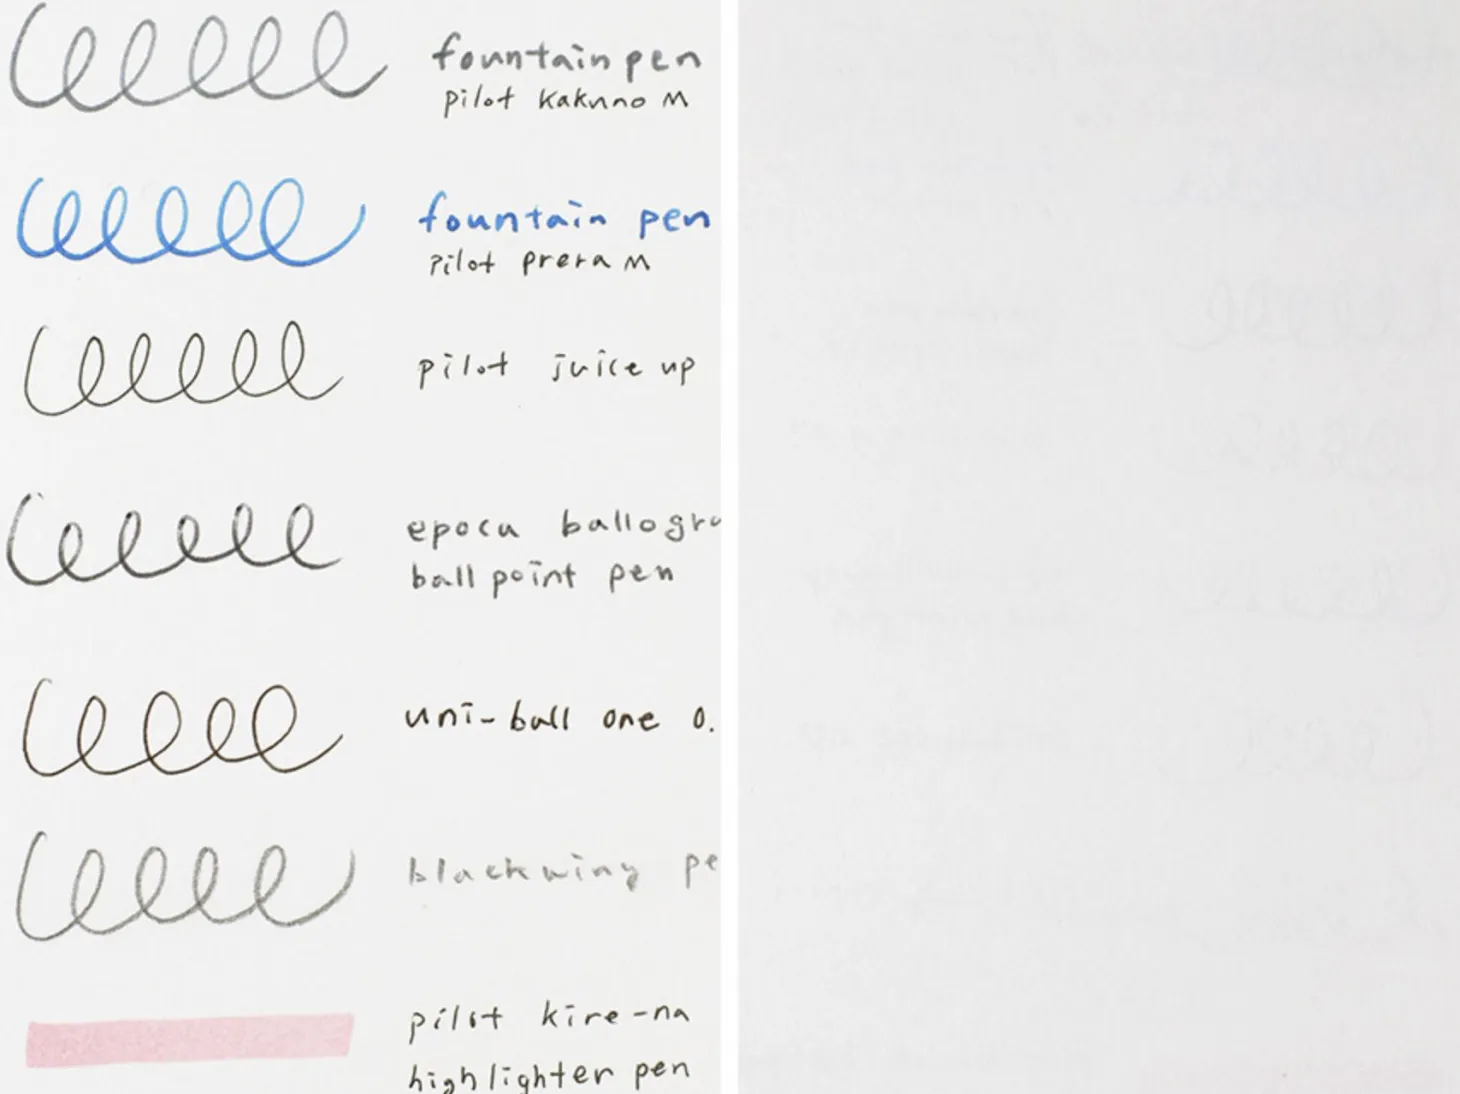 fountain pen
pilot kakuno M
fountain pen
pilot prera M
pilot juice up
epoca ballogra
ball point pen
uni-ball one 0.
blackwing pe
pilot kire-na
highlighter pen